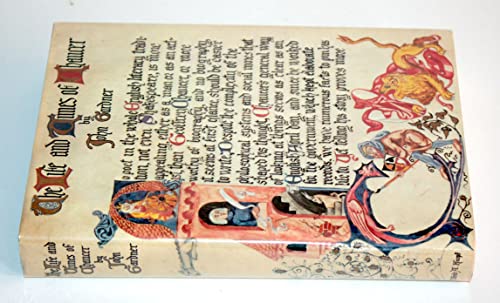 The Life and Times of Chaucer
by
John Gardner
No poet in the whole English literary tradi-
tion, not even Shakespeare, is more
appealing, either as a man or as an art-
ist than Geoffrey Chaucer, or more
worthy of biography, and no biography,
it seems at first glance, should be easier
to write. Despite the complexity of the
philosophical systems and social mores that
shaped his thought, Chaucer's general way
of looking at things seems as clear as an
English April day, and since he worked
for the government, which kept elaborate
records, we have numerous facts to pin his
life to. Yet telling his story proves more
The Life and
Times of
Chaucer
by
John
Gardner
Knopf